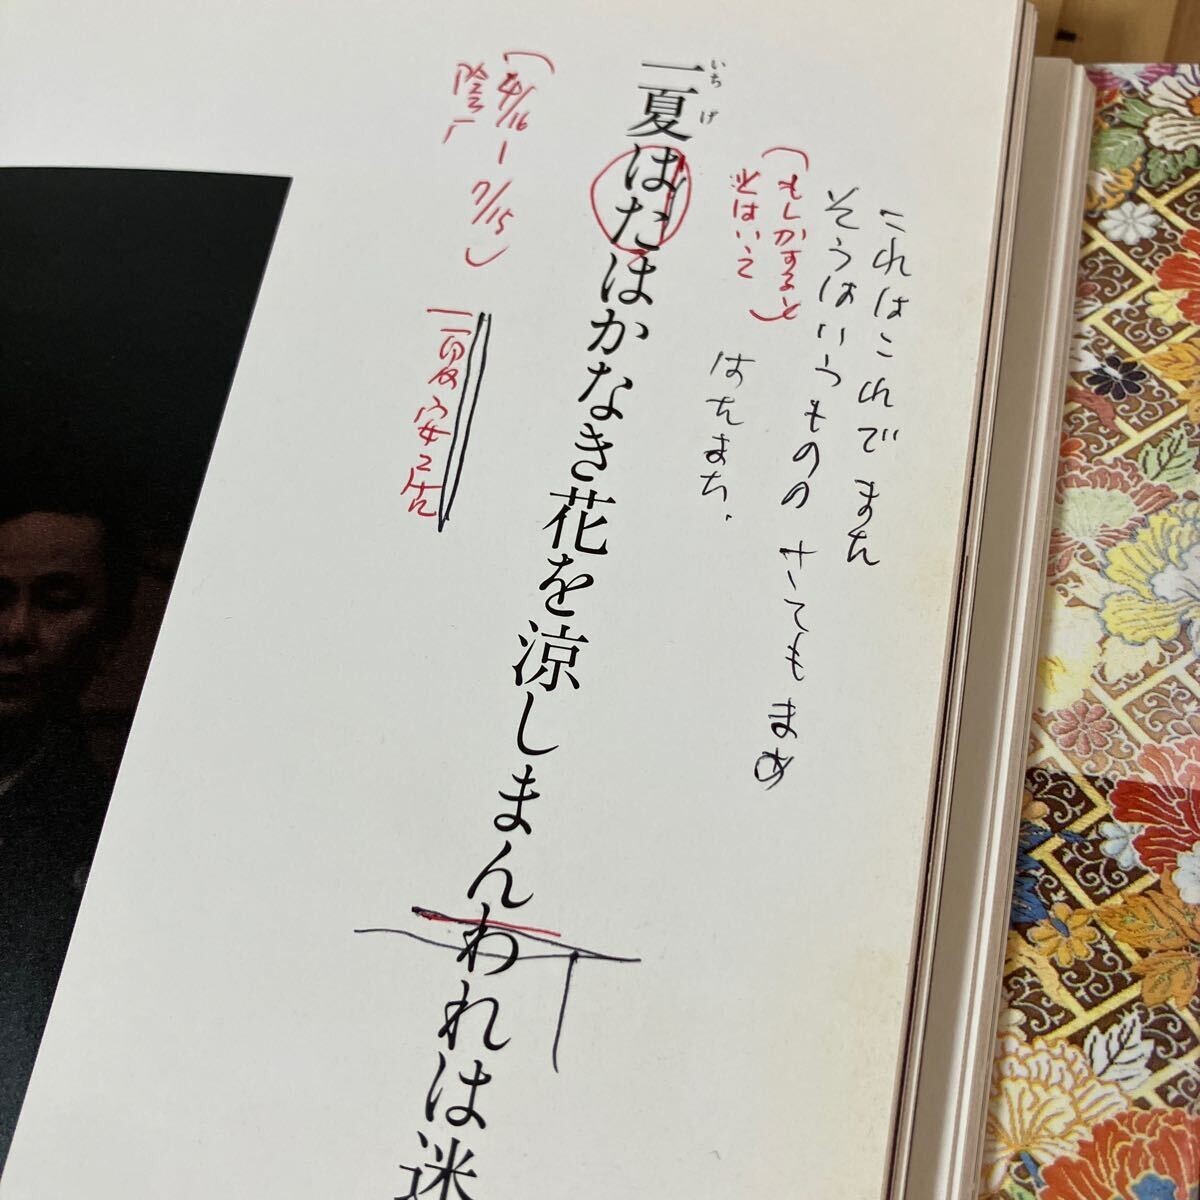 これはこれでまた
そうはいうものの さてもまあ
(もしかすると)
とはいって
はたまた、
いちげ
一夏はたはかなき花を涼しまんわれは迷
(4/16-7/15)
陰一
一夏安居